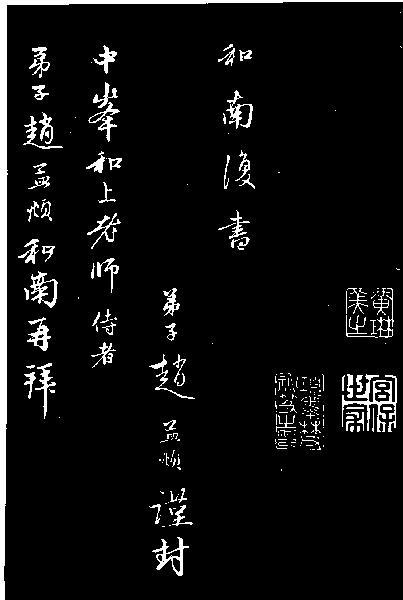 和南復書
弟子趙孟頫謹封
中峯和上老師侍者
弟子趙孟頫和南再拜
黄琳美之
宮保世家